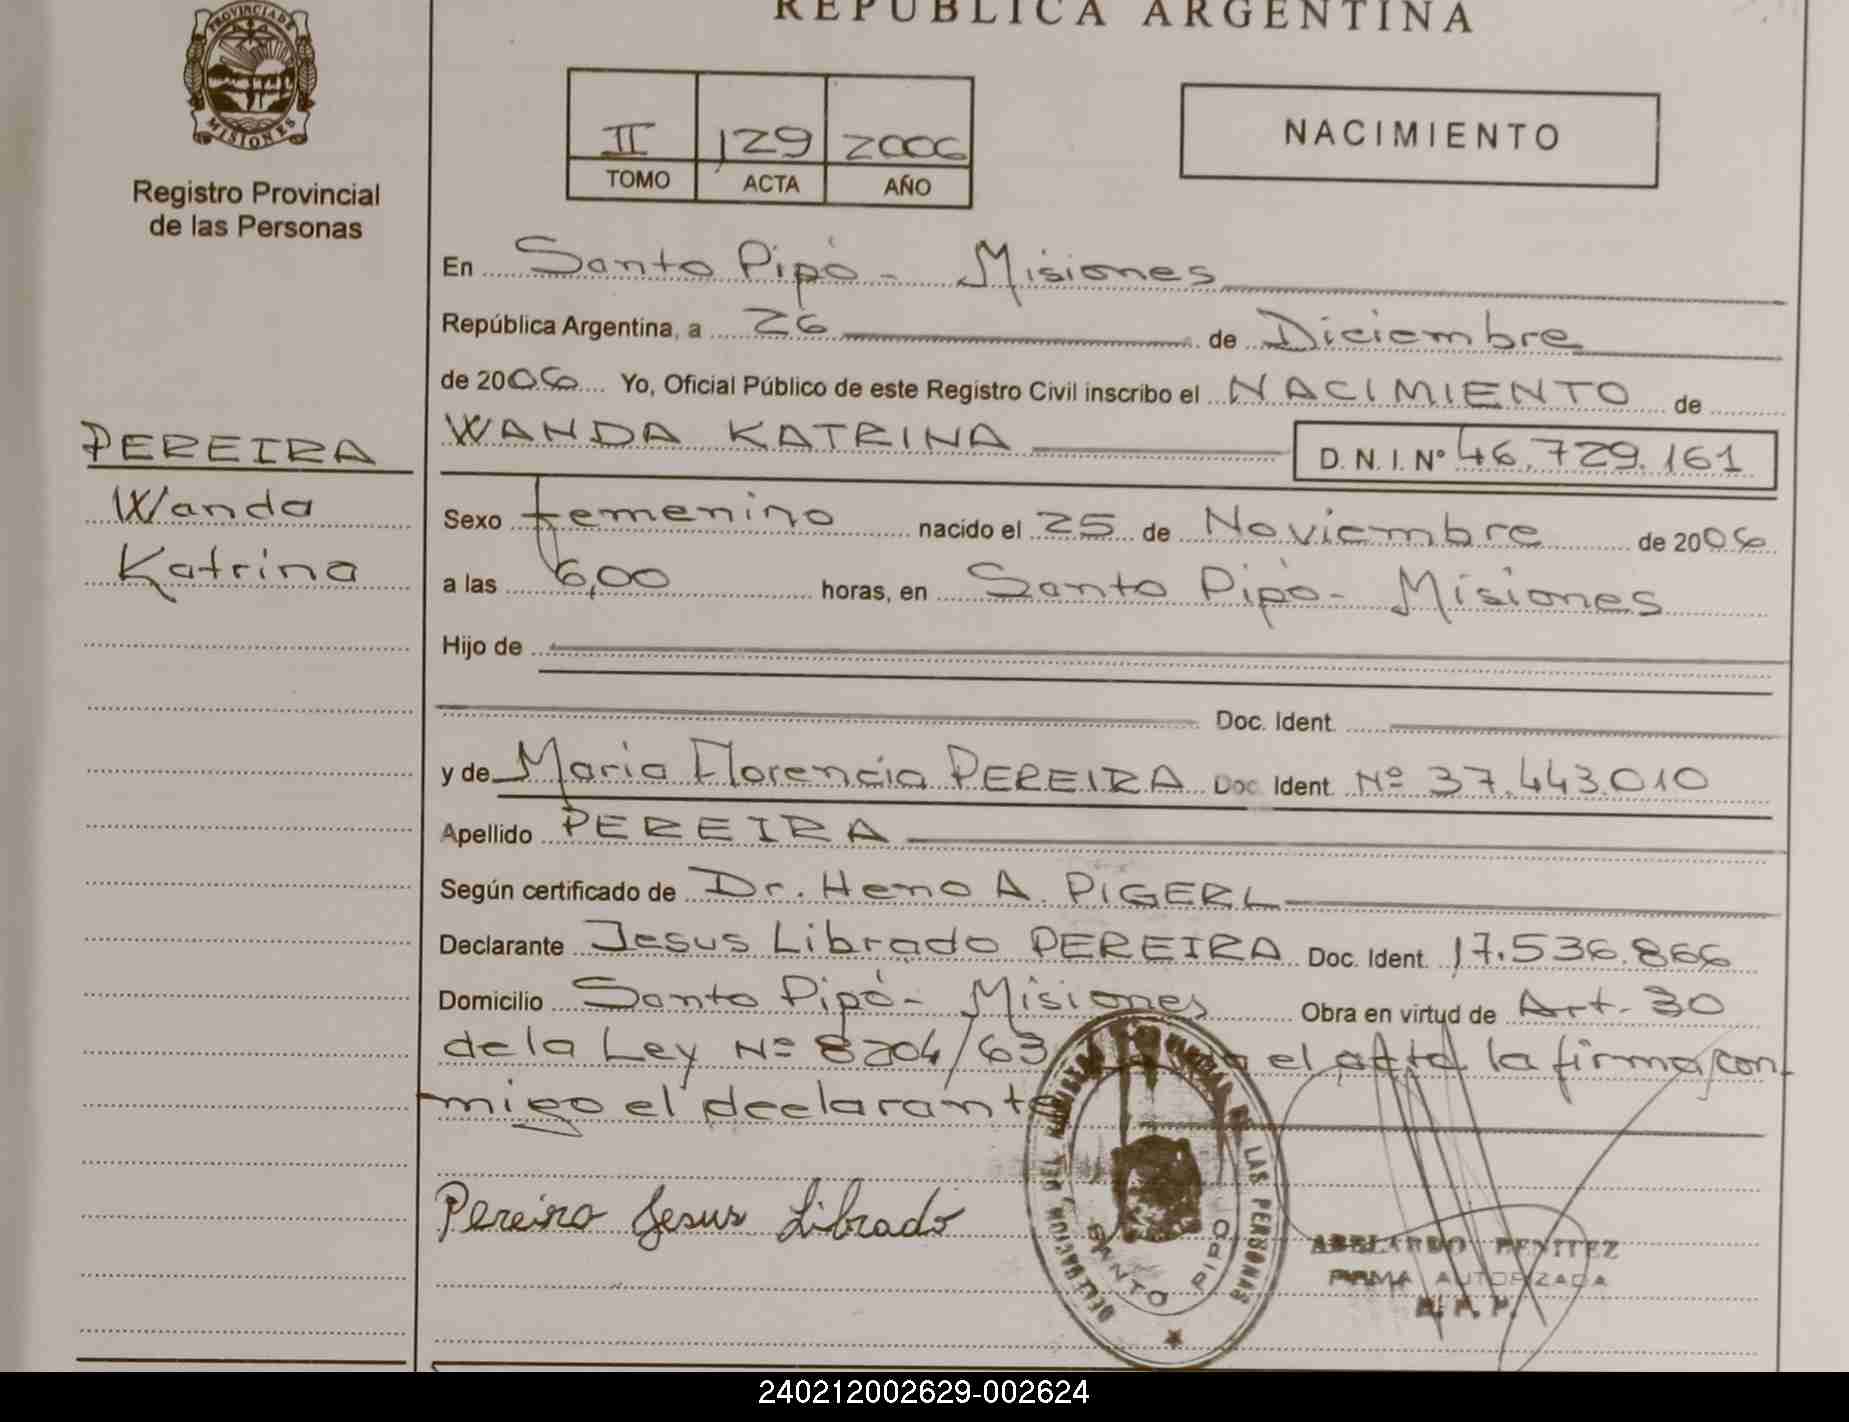 REPUBLICA ARGENTINA
PROVINCIA DE MISIONES
Registro Provincial
de las Personas
II 129 2006
TOMO ACTA AÑO
NACIMIENTO
En Santo Pipó - Misiones
República Argentina, a 26 de Diciembre
de 2006 Yo, Oficial Público de este Registro Civil inscribo el NACIMIENTO de
WANDA KATRINA D. N. I. Nº 46.729.161
PEREIRA
Wanda
Katrina
Sexo Femenino nacido el 25 de Noviembre de 2006
a las 6,00 horas, en Santo Pipó - Misiones
Hijo de
Doc. Ident.
y de Maria Florencia PEREIRA Doc. Ident. Nº 37.443.010
Apellido PEREIRA
Según certificado de Dr. Heno A. PIGERL
Declarante Jesus Librado PEREIRA Doc. Ident. 17.536.866
Domicilio Santo Pipó - Misiones Obra en virtud de Art. 30
de la Ley Nº 8204/63 el acta la firma con-
migo el declarante
Pereira Jesus Librado
DELEGACION DEL DE LAS PERSONAS
SANTO PIPO
ABELARDO BENITEZ
FIRMA AUTORIZADA
240212002629-002624